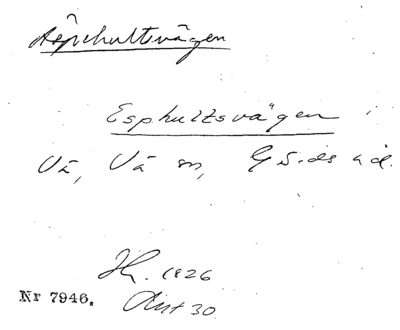 Äspehultsvägen
Esphultsvägen
Vä, Vä sn, G
1826
Nr 7946. Akt 30